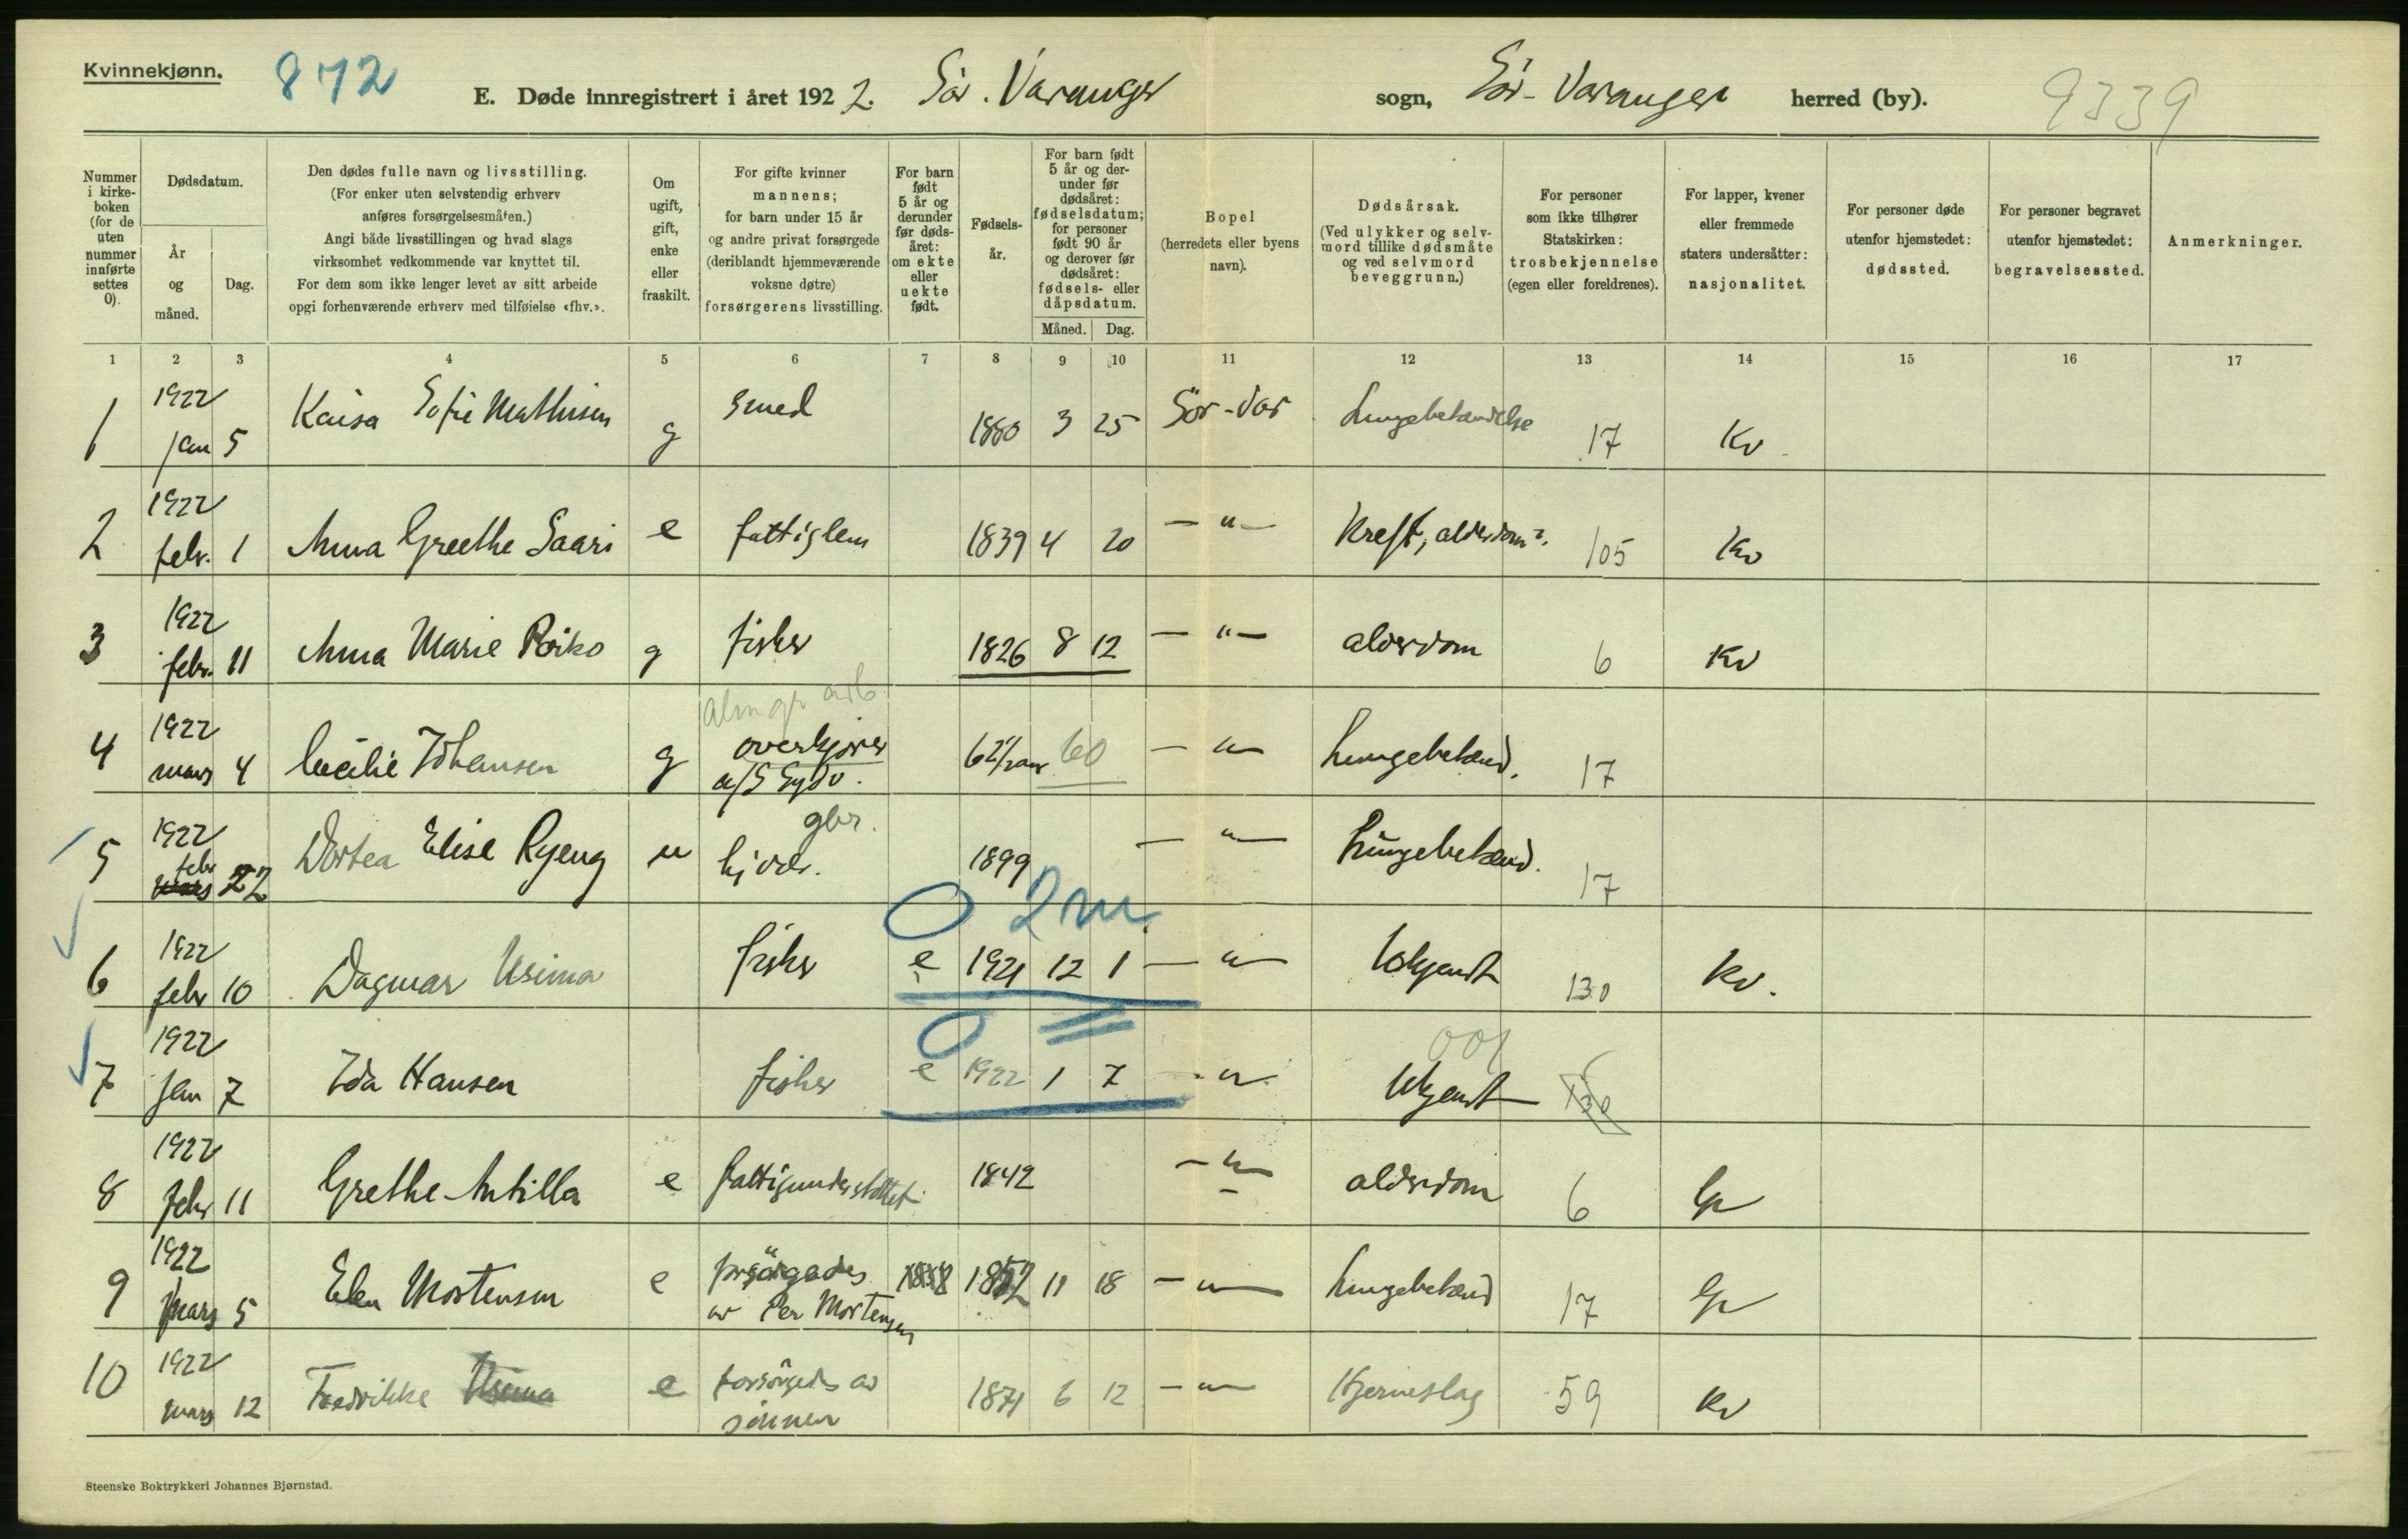 Kvinnekjønn.
872
E. Døde innregistrert i året 1922. Sør-Varanger sogn, Sør-Varanger herred (by).
9339
Nummer i kirke-boken (for de uten nummer innførte settes 0).
Dødsdatum.
År og måned.
Dag.
Den dødes fulle navn og livsstilling.
(For enker uten selvstendig erhverv
anføres forsørgelsesmåten.)
Angi både livsstillingen og hvad slags
virksomhet vedkommende var knyttet til.
For dem som ikke lenger levet av sitt arbeide
opgi forhenværende erhverv med tilføielse «fhv.».
Om ugift, gift, enke eller fraskilt.
For gifte kvinner
mannens;
for barn under 15 år
og andre privat forsørgede
(deriblandt hjemmeværende
voksne døtre)
forsørgerens livsstilling.
For barn født 5 år og derunder før dødsåret: om ekte eller uekte født.
Fødsels-år.
For barn født 5 år og derunder før dødsåret: fødselsdatum; for personer født 90 år og derover før dødsåret: fødsels- eller dåpsdatum.
Måned. Dag.
Bopel
(herredets eller byens
navn).
Dødsårsak.
(Ved ulykker og selv-
mord tillike dødsmåte
og ved selvmord
beveggrunn.)
For personer
som ikke tilhører
Statskirken:
trosbekjennelse
(egen eller foreldrenes).
For lapper, kvener
eller fremmede
staters undersåtter:
nasjonalitet.
For personer døde
utenfor hjemstedet:
dødssted.
For personer begravet
utenfor hjemstedet:
begravelsessted.
Anmerkninger.
1 2 3 4 5 6 7 8 9 10 11 12 13 14 15 16 17
1 1922 jan 5 Kaisa Sofie Mathisen g smed 1880 3 25 Sör-Var Lungebetændelse 17 Kv.
2 1922 febr. 1 Anna Greethe Saari e fattiglem 1839 4 20 — " — Kreft, alderdom?. 105 Kv
3 1922 febr. 11 Anna Marie Poiko g fisker 1826 8 12 — " — alderdom 6 Kv
almgr arb.
4 1922 mars 4 Cecilie Johansen g overkjører 62 60 — " — Lungebetænd. 17
a/S Sydv.
gbr.
5 1922 febr 22 Dortea Elise Ryeng u 1899 — " — Lungebetænd. 17
2 m.
6 1922 febr 10 Dagmar Usima fisker e 1921 12 1 — " — Ukjendt 130 Kv.
001
7 1922 jan 7 Ida Hansen fisker e 1922 1 7 — " — Ukjendt 130
8 1922 febr 11 Grethe Antilla e fattigunderstöttet 1842 — " — alderdom 6
9 1922 mars 5 Elen Mortensen e forsörgedes 1852 11 18 — " — Lungebetænd 17
av Per Mortensen
10 1922 mars 12 Fredrikke Usima e forsörgedes av 1871 6 12 — " — Hjerneslag 59 Kv
sönnen
Steenske Boktrykkeri Johannes Bjørnstad.